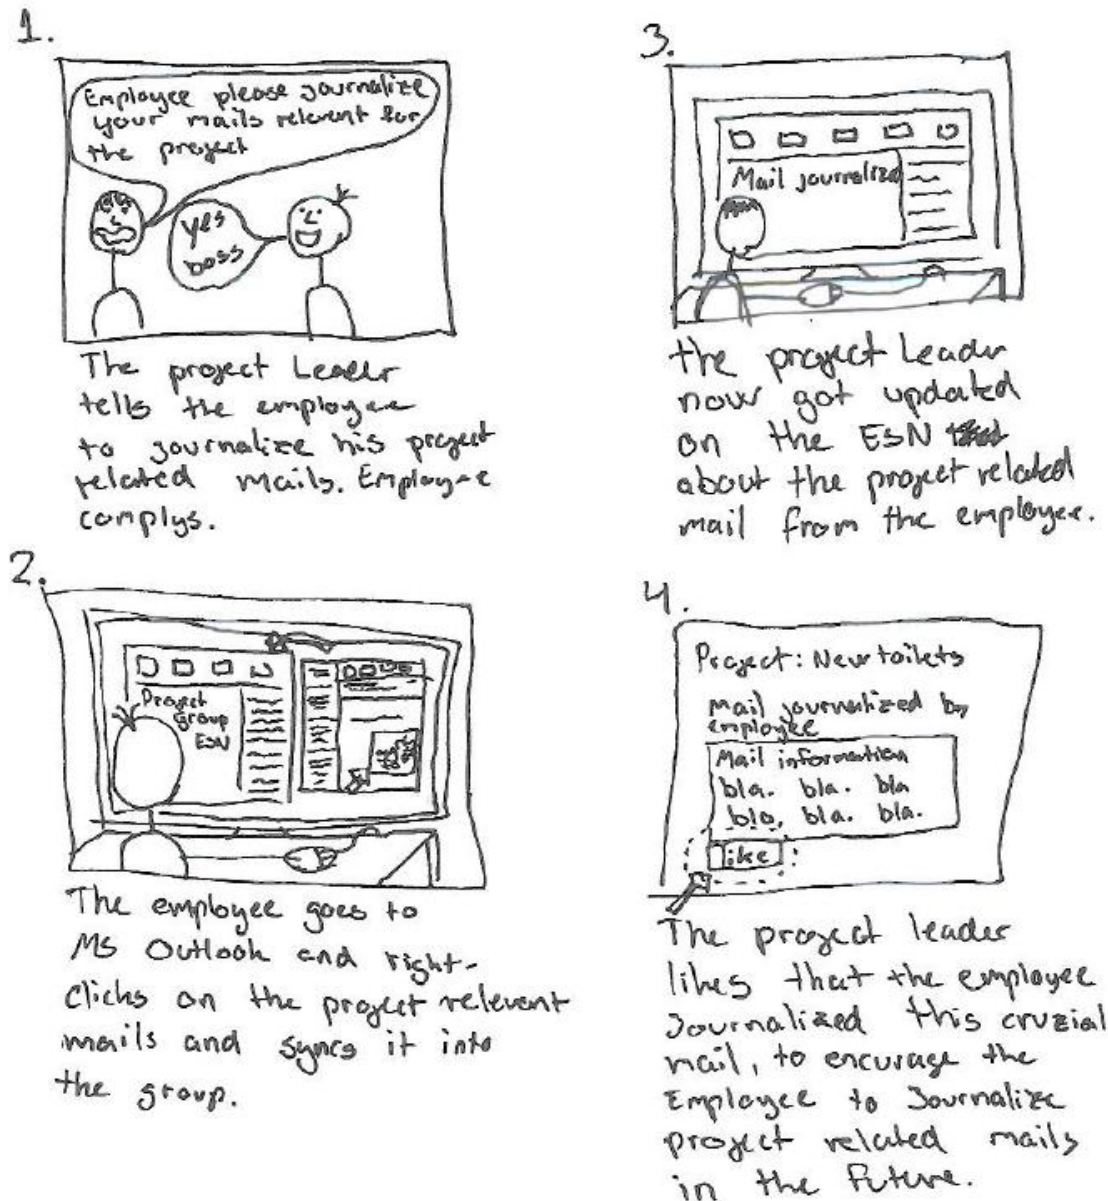 1.
Employee please journalize
your mails relevent for
the project
yes
boss
The project Leader
tells the employee
to journalize his project
related mails. Employee
complys.
2.
Project
Group
ESN
The employee goes to
Ms Outlook and right-
clicks on the project relevent
mails and syncs it into
the group.
3.
Mail journalized
the project Leader
now got updated
on the ESN
about the project related
mail from the employee.
4.
Project: New toilets
Mail journalized by
employee
Mail information
bla. bla. bla
bla. bla. bla.
like
The project leader
likes that the employee
Journalized this cruzial
mail, to encurage the
Employee to Journalize
project related mails
in the future.